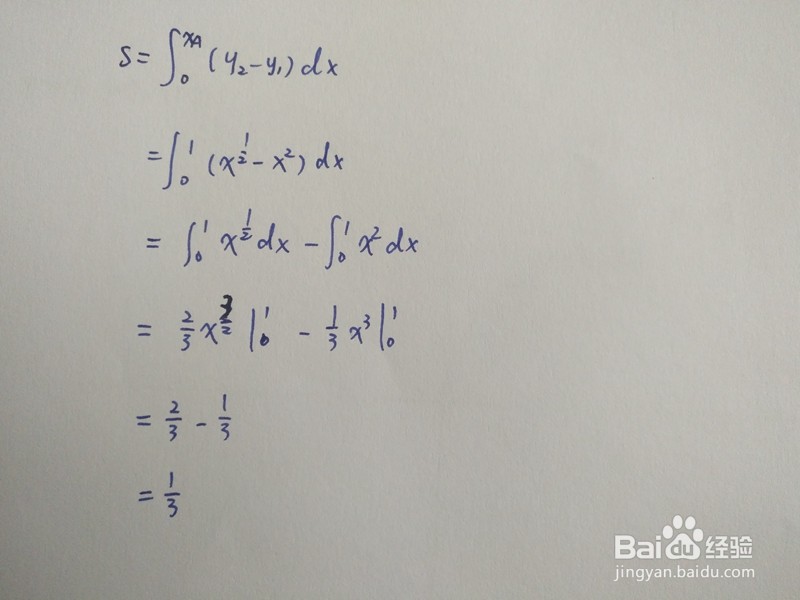 S = ∫₀^{x_A} (y₂ - y₁) dx
= ∫₀¹ (x^{1/2} - x²) dx
= ∫₀¹ x^{1/2} dx - ∫₀¹ x² dx
= 2/3 x^{3/2} |₀¹ - 1/3 x³ |₀¹
= 2/3 - 1/3
= 1/3
Baidu 经验
jingyan.baidu.com